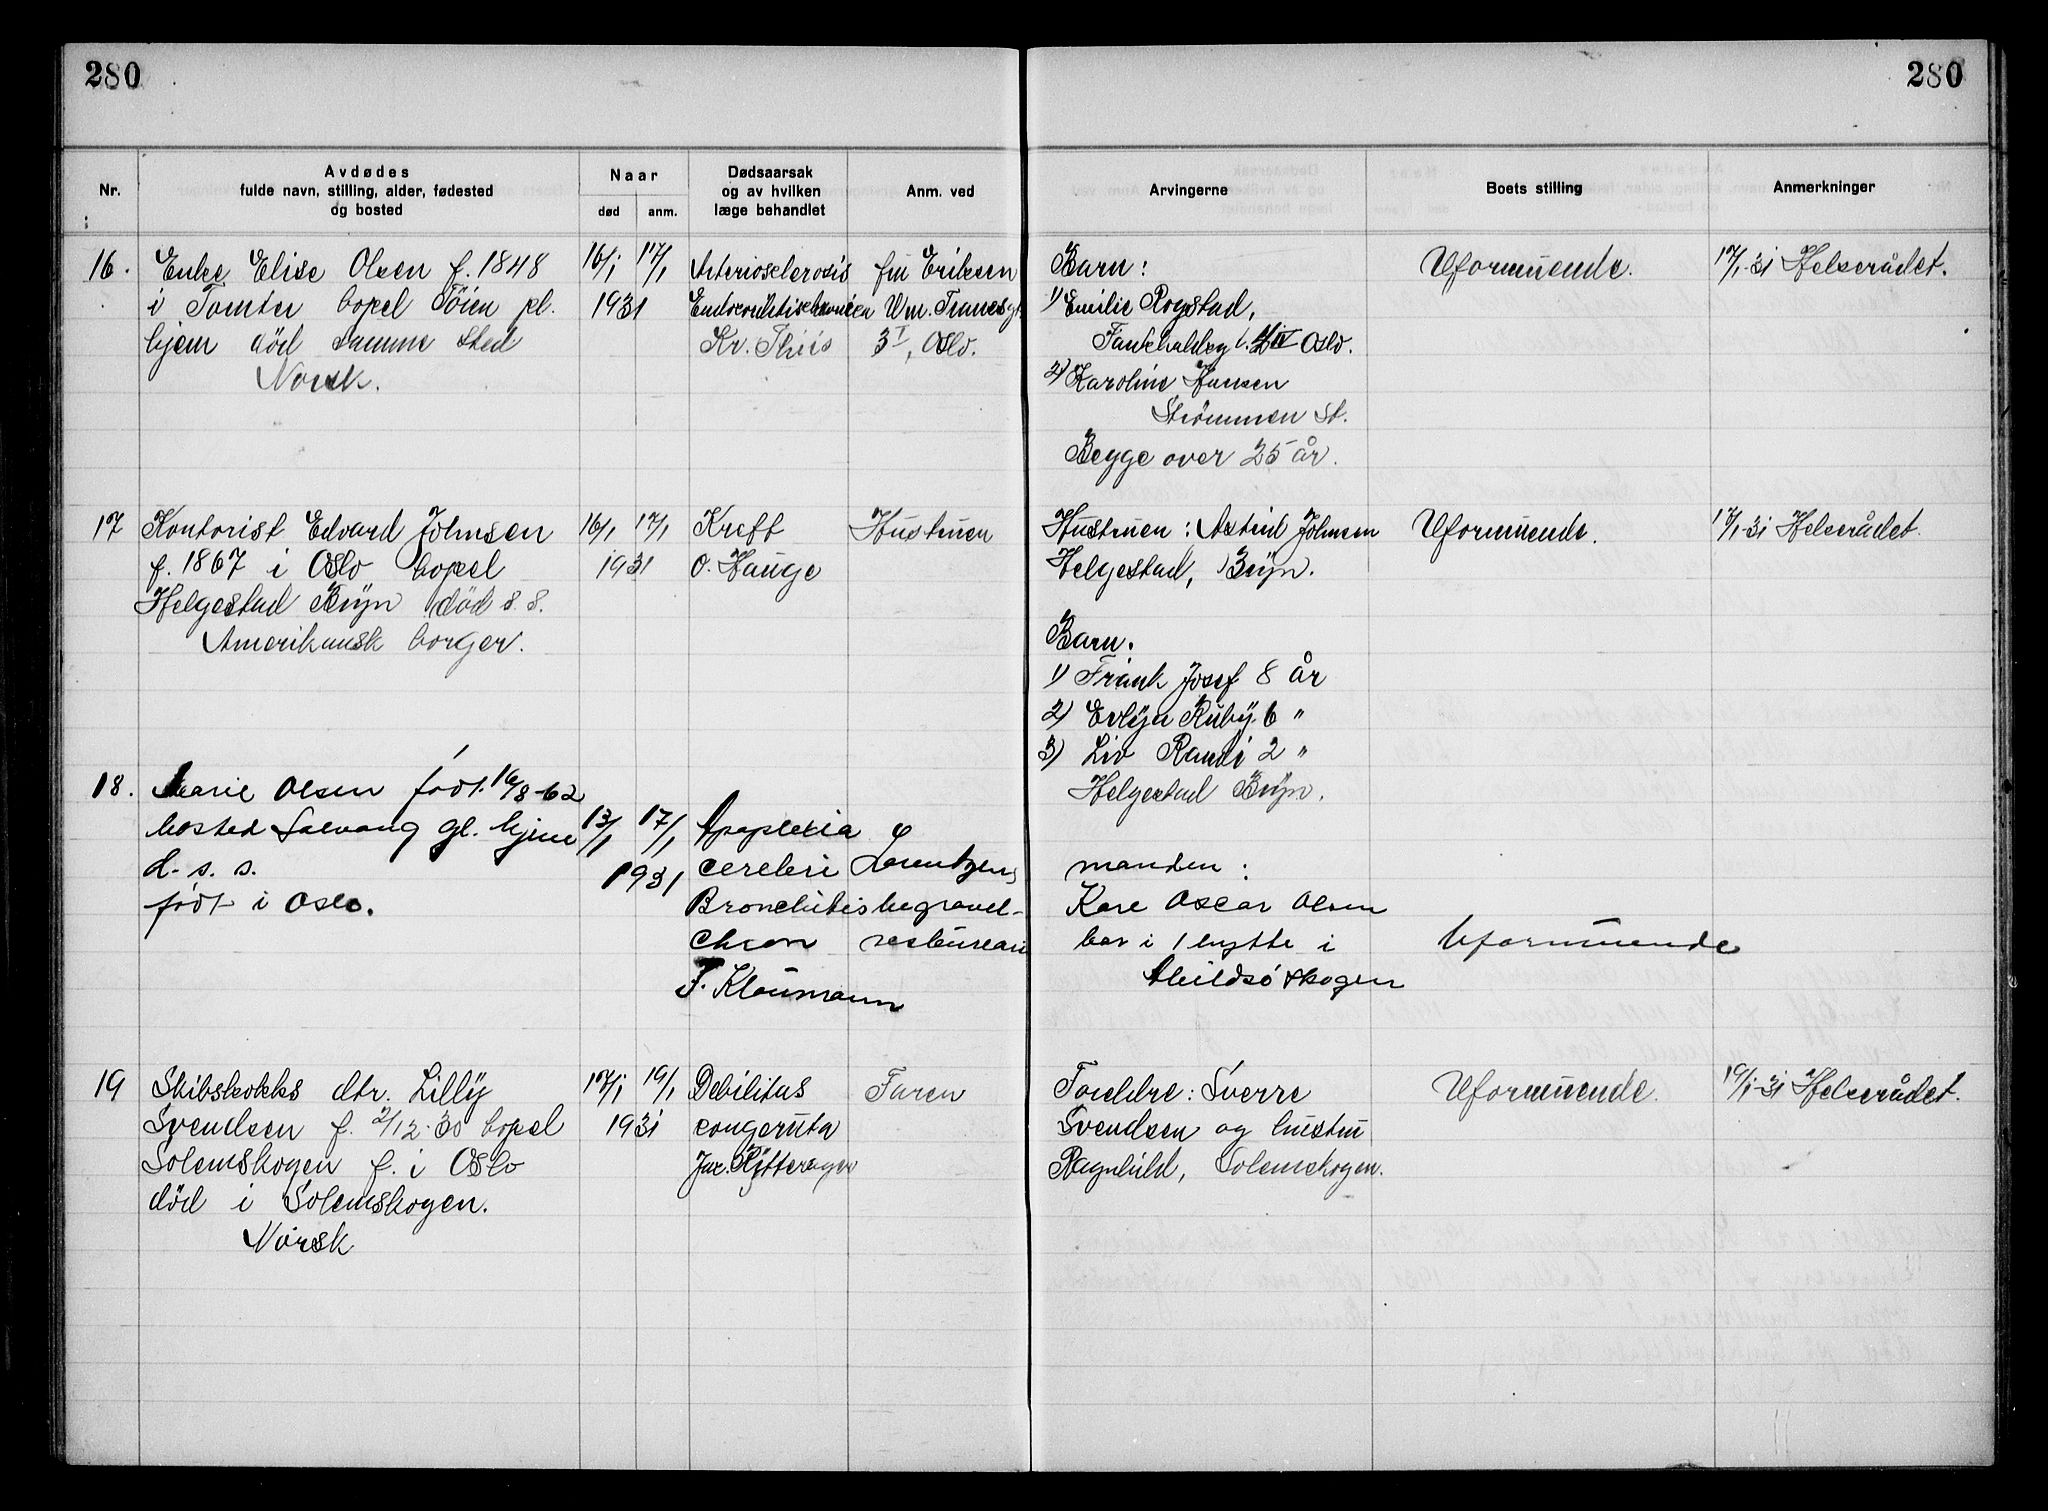 280
280
Nr.
Avdødes
fulde navn, stilling, alder, fødested
og bosted
Naar
død
anm.
Dødsaarsak
og av hvilken
læge behandlet
Anm. ved
Arvingerne
Boets stilling
Anmerkninger
16.
Enke Elise Olsen f. 1848
i Tomter bopel Töien pl.
hjem död samme sted
Norsk.
16/1 17/1
1931
Arteriosclerosis
Kr. Thiis
fru Eriksen
Wm. Tranesgt.
3 I, Oslo.
Barn:
1) Emilie Rogstad,
IV Oslo.
2) Karoline Hansen
Strömmen St.
Begge over 25 år.
Uformuende.
17/1-31 Helserådet.
17
Kontorist Edvard Johnsen
f. 1867 i Oslo bopel
Helgestad Bryn död s. s.
Amerikansk borger.
16/1 17/1
1931
Kreft
O. Hauge
Hustruen
Hustruen: Astrid Johnsen
Helgestad, Bryn.
Barn.
1) Frank Josef 8 år
2) Evlyn Ruby 6 "
3) Liv Randi 2 "
Helgestad Bryn.
Uformuende.
17/1-31 Helserådet.
18.
Marie Olsen födt. 16/8-62
bosted Solvang gl. hjem
d. s. s.
födt i Oslo.
13/1 17/1
1931
Apoplexia
cerebri
Bronchitis
chron
F. Klaumann
Lorentzens
begravel-
sesbureau
manden:
Kare Oscar Olsen
bor i 1 hytte i
Abildsö skogen
Uformuende
19
Skibskokks dtr. Lilly
Svendsen f. 2/12-30 bopel
Solemskogen f. i Oslo
död i Solemskogen.
Norsk
17/1 19/1
1931
Debilitas
congenita
Faren
Foreldre: Sverre
Svendsen og hustru
Ragnhild, Solemskogen.
Uformuende.
19/1-31 Helserådet.